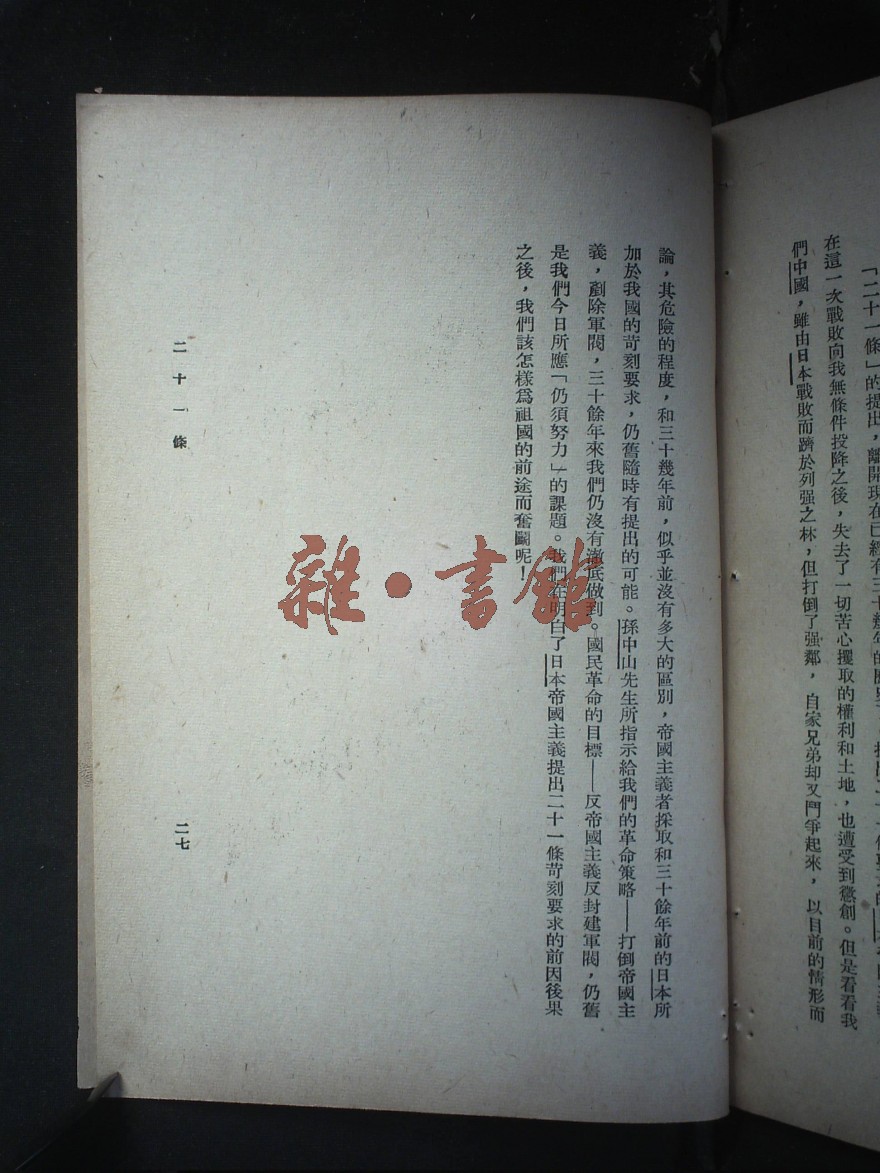 「二十一條」的提出，離開現在已經有三十幾年的歷史
在這一次戰敗向我無條件投降之後，失去了一切苦心攫取的權利和土地，也遭受到懲創。但是看看我
們中國，雖由日本戰敗而躋於列强之林，但打倒了强鄰，自家兄弟却又鬥爭起來，以目前的情形而
論，其危險的程度，和三十幾年前，似乎並沒有多大的區別，帝國主義者採取和三十餘年前的日本所
加於我國的苛刻要求，仍舊隨時有提出的可能。孫中山先生所指示給我們的革命策略——打倒帝國主
義，剷除軍閥，三十餘年來我們仍沒有澈底做到。國民革命的目標——反帝國主義反封建軍閥，仍舊
是我們今日所應「仍須努力」的課題。我們在明白了日本帝國主義提出二十一條苛刻要求的前因後果
之後，我們該怎樣爲祖國的前途而奮鬭呢！
二十一條
二七
雜·書館